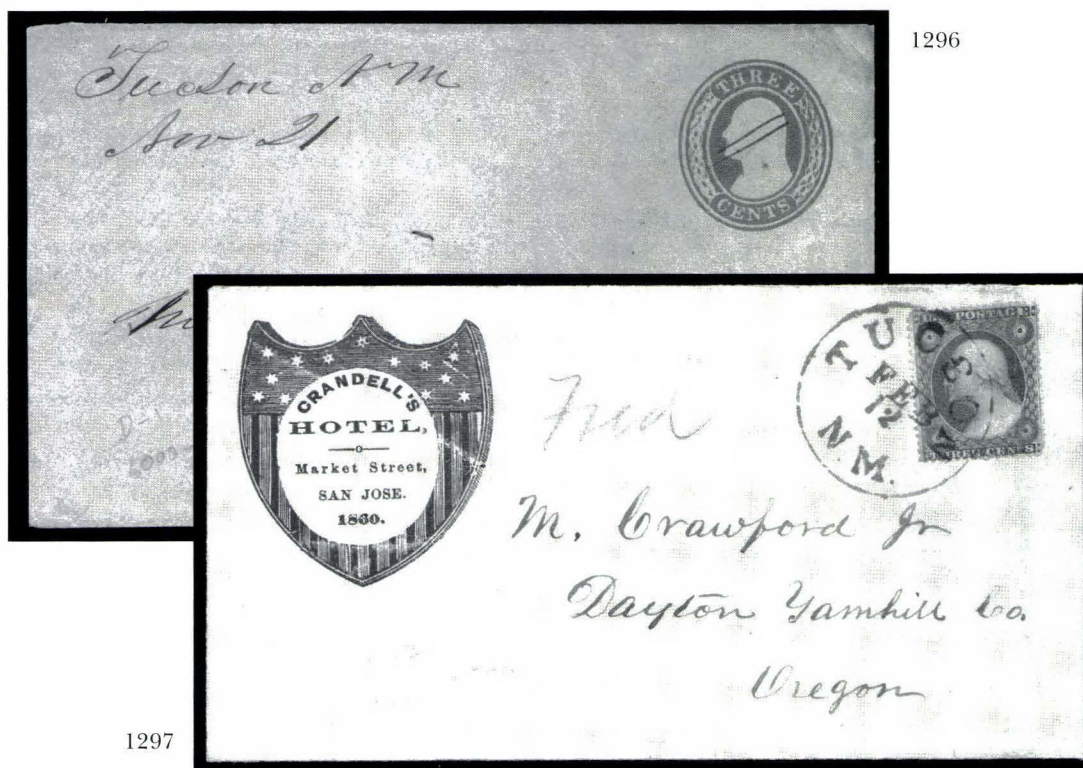 1296
Tucson N. M
Nov 21
THREE
CENTS
CRANDELL'S
HOTEL,
Market Street,
SAN JOSE.
1860.
Fred
TUCSON
FEB
12
N M.
POSTAGE
CENTS
M. Crawford Jr
Dayton Yamhill Co.
Oregon
1297